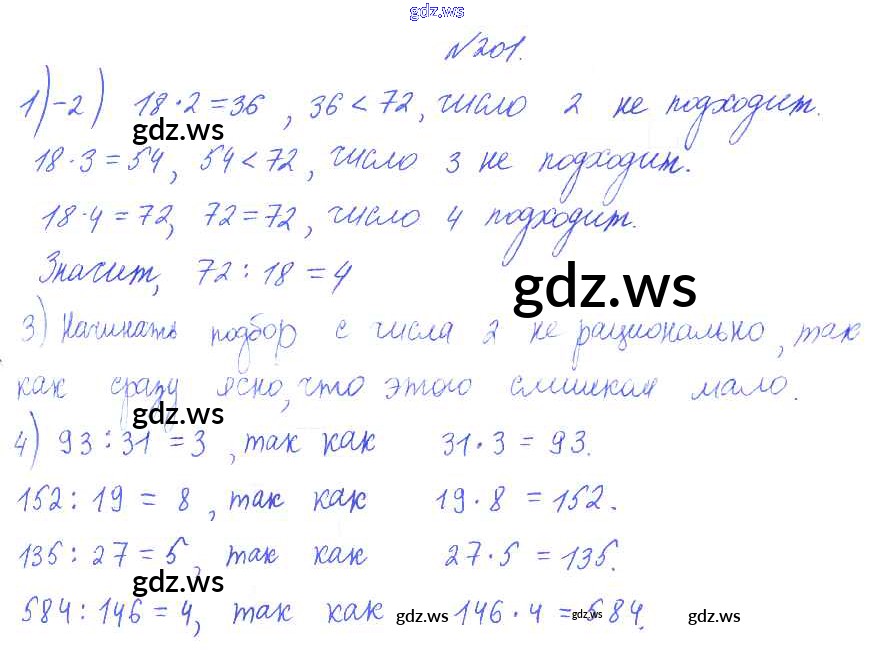 gdz.ws
№201.
1)-2) 18·2=36, 36<72, число 2 не подходит.
gdz.ws
18·3=54, 54<72, число 3 не подходит.
18·4=72, 72=72, число 4 подходит.
Значит, 72:18=4
gdz.ws
3) Начинать подбор с числа 2 не рационально, так
как сразу ясно, что этого слишком мало.
gdz.ws
4) 93:31=3, так как 31·3=93.
152:19=8, так как 19·8=152.
135:27=5, так как 27·5=135.
gdz.ws
584:146=4, так как 146·4=584.
gdz.ws gdz.ws gdz.ws